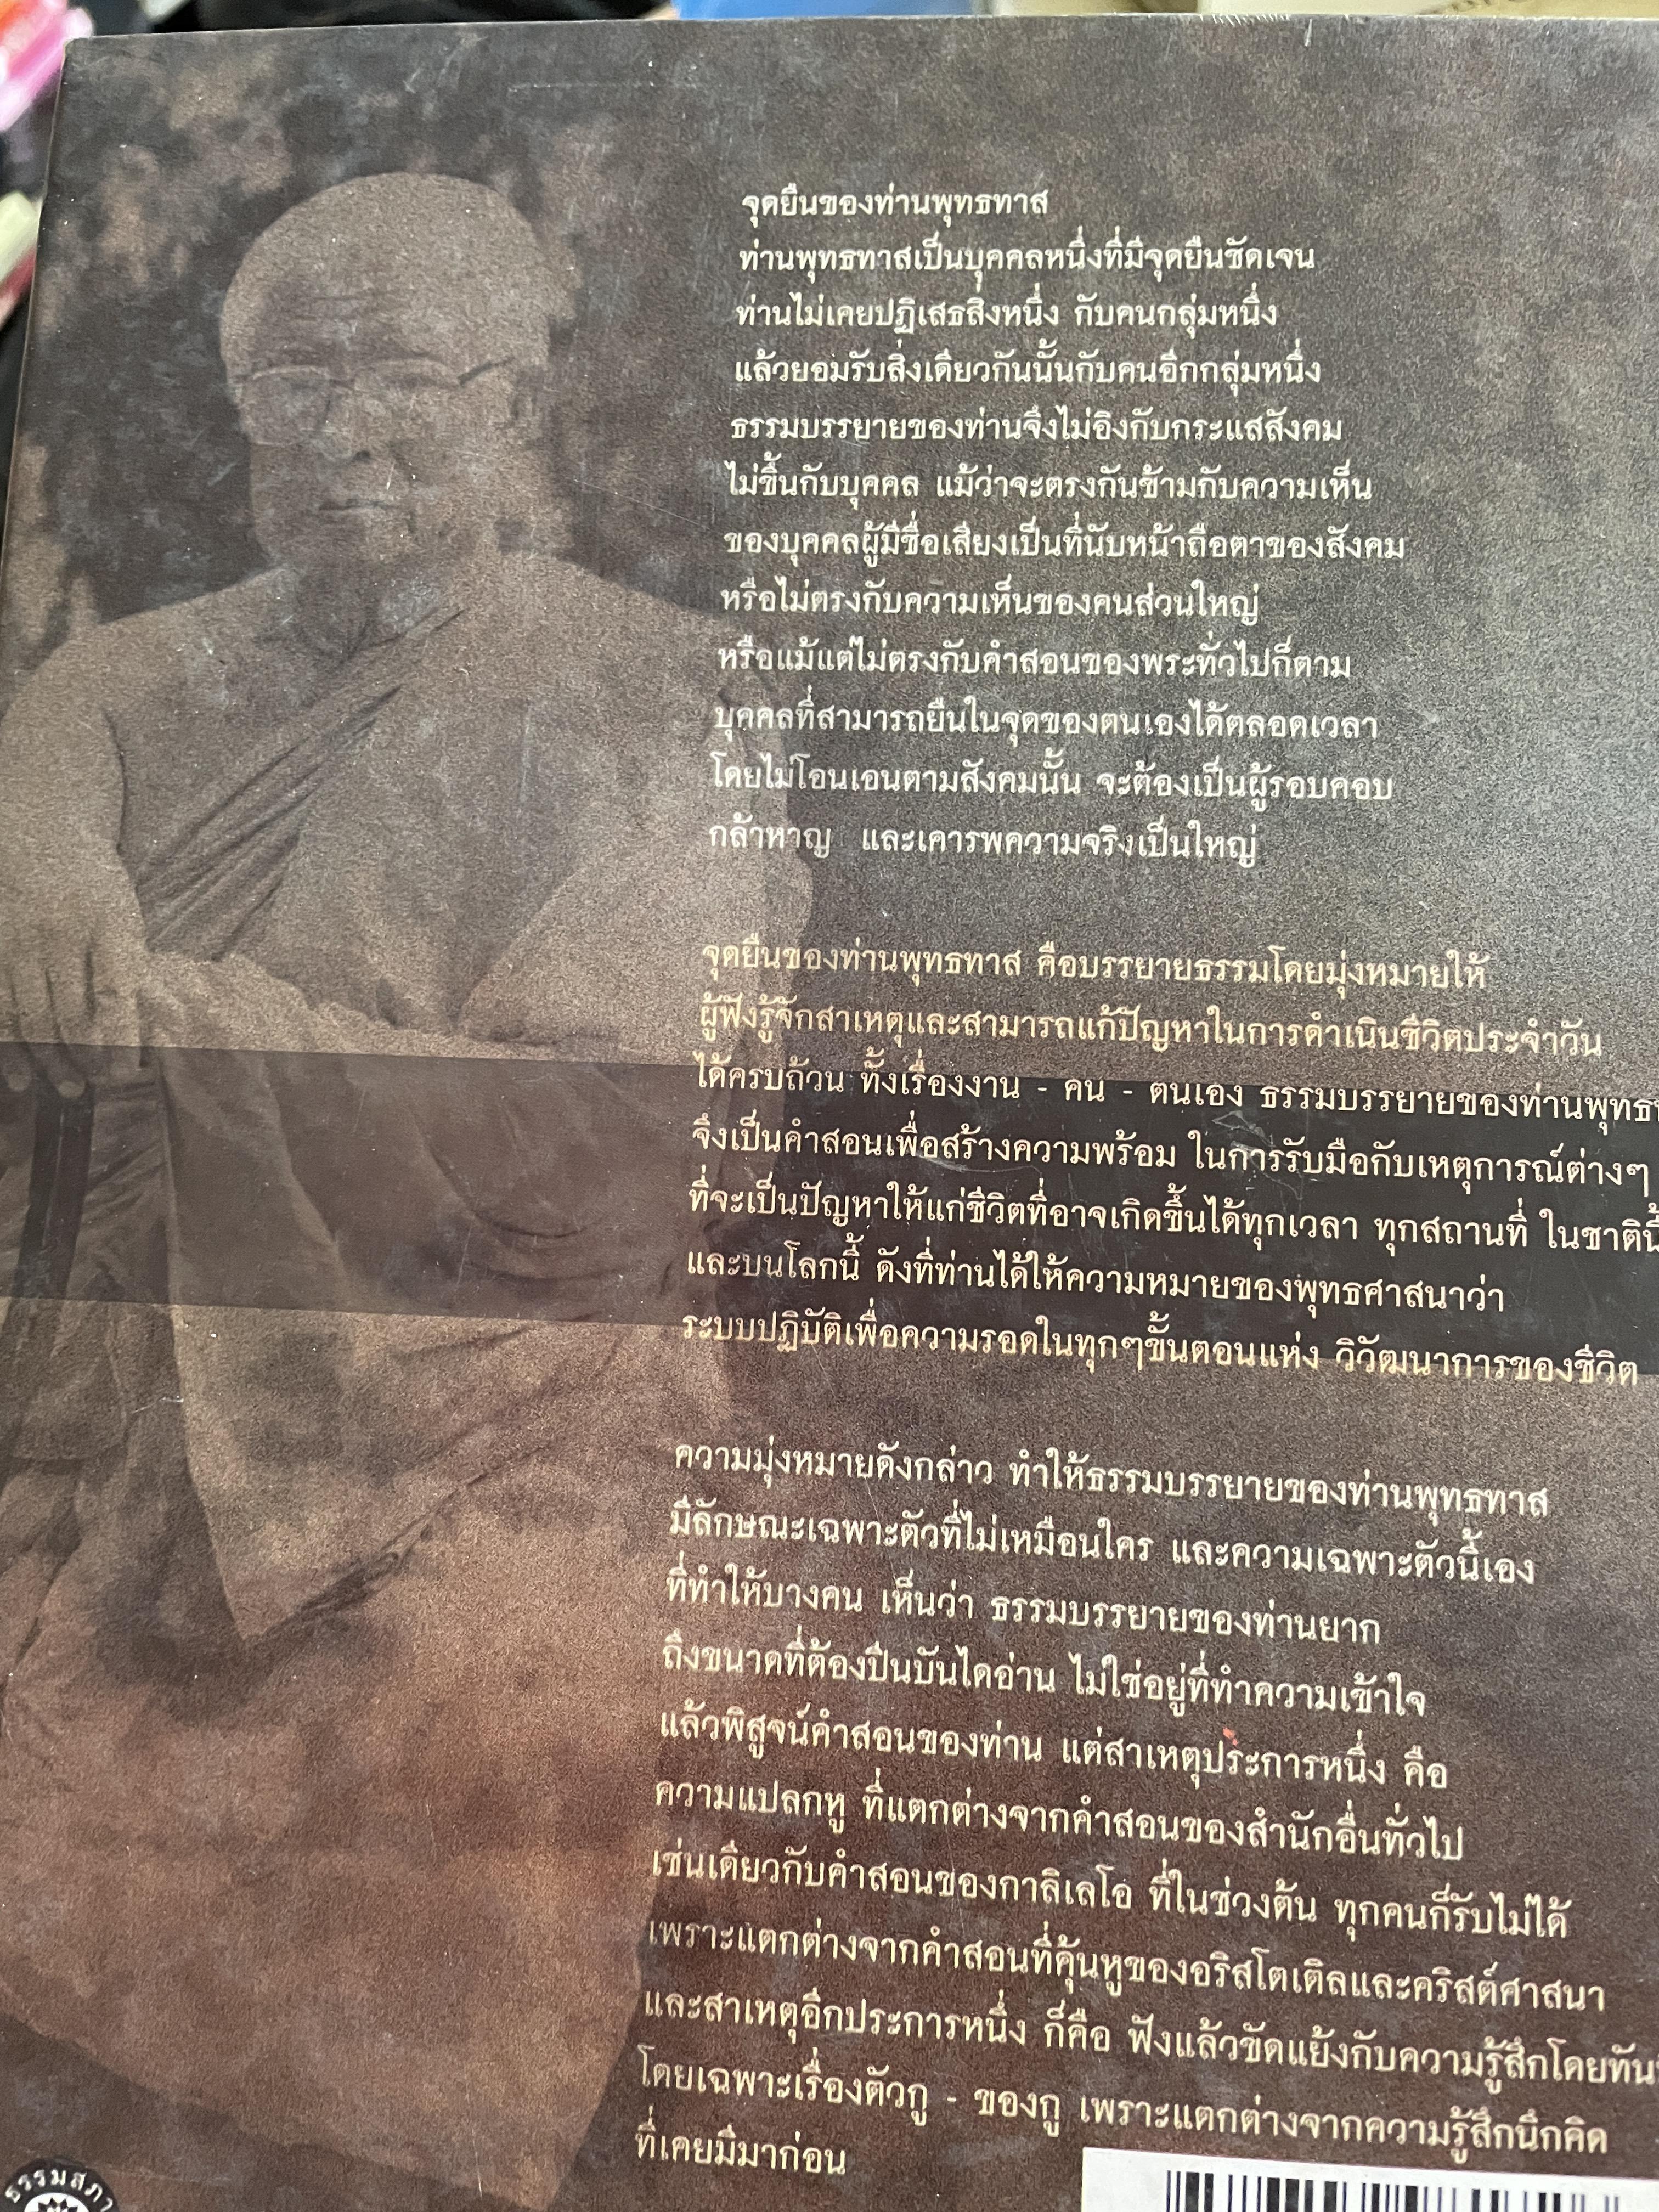 จุดยืนของท่านพุทธทาส
ท่านพุทธทาสเป็นบุคคลหนึ่งที่มีจุดยืนชัดเจน
ท่านไม่เคยปฏิเสธสิ่งหนึ่ง กับคนกลุ่มหนึ่ง
แล้วยอมรับสิ่งเดียวกันนั้นกับคนอีกกลุ่มหนึ่ง
ธรรมบรรยายของท่านจึงไม่อิงกับกระแสสังคม
ไม่ขึ้นกับบุคคล แม้ว่าจะตรงกันข้ามกับความเห็น
ของบุคคลผู้มีชื่อเสียงเป็นที่นับหน้าถือตาของสังคม
หรือไม่ตรงกับความเห็นของคนส่วนใหญ่
หรือแม้แต่ไม่ตรงกับคำสอนของพระทั่วไปก็ตาม
บุคคลที่สามารถยืนในจุดของตนเองได้ตลอดเวลา
โดยไม่โอนเอนตามสังคมนั้น จะต้องเป็นผู้รอบคอบ
กล้าหาญ และเคารพความจริงเป็นใหญ่
จุดยืนของท่านพุทธทาส คือบรรยายธรรมโดยมุ่งหมายให้
ผู้ฟังรู้จักสาเหตุและสามารถแก้ปัญหาในการดำเนินชีวิตประจำวัน
ได้ครบถ้วน ทั้งเรื่องงาน - คน - ตนเอง ธรรมบรรยายของท่านพุทธ
จึงเป็นคำสอนเพื่อสร้างความพร้อม ในการรับมือกับเหตุการณ์ต่างๆ
ที่จะเป็นปัญหาให้แก่ชีวิตที่อาจเกิดขึ้นได้ทุกเวลา ทุกสถานที่ ในชาตินี้
และบนโลกนี้ ดังที่ท่านได้ให้ความหมายของพุทธศาสนาว่า
ระบบปฏิบัติเพื่อความรอดในทุกๆขั้นตอนแห่ง วิวัฒนาการของชีวิต
ความมุ่งหมายดังกล่าว ทำให้ธรรมบรรยายของท่านพุทธทาส
มีลักษณะเฉพาะตัวที่ไม่เหมือนใคร และความเฉพาะตัวนี้เอง
ที่ทำให้บางคน เห็นว่า ธรรมบรรยายของท่านยาก
ถึงขนาดที่ต้องปีนบันไดอ่าน ไม่ใช่อยู่ที่ทำความเข้าใจ
แล้วพิสูจน์คำสอนของท่าน แต่สาเหตุประการหนึ่ง คือ
ความแปลกหู ที่แตกต่างจากคำสอนของสำนักอื่นทั่วไป
เช่นเดียวกับคำสอนของกาลิเลโอ ที่ในช่วงต้น ทุกคนก็รับไม่ได้
เพราะแตกต่างจากคำสอนที่คุ้นหูของอริสโตเติลและคริสต์ศาสนา
และสาเหตุอีกประการหนึ่ง ก็คือ ฟังแล้วขัดแย้งกับความรู้สึกโดยทัน
โดยเฉพาะเรื่องตัวกู - ของกู เพราะแตกต่างจากความรู้สึกนึกคิด
ที่เคยมีมาก่อน
ธรรมสภา